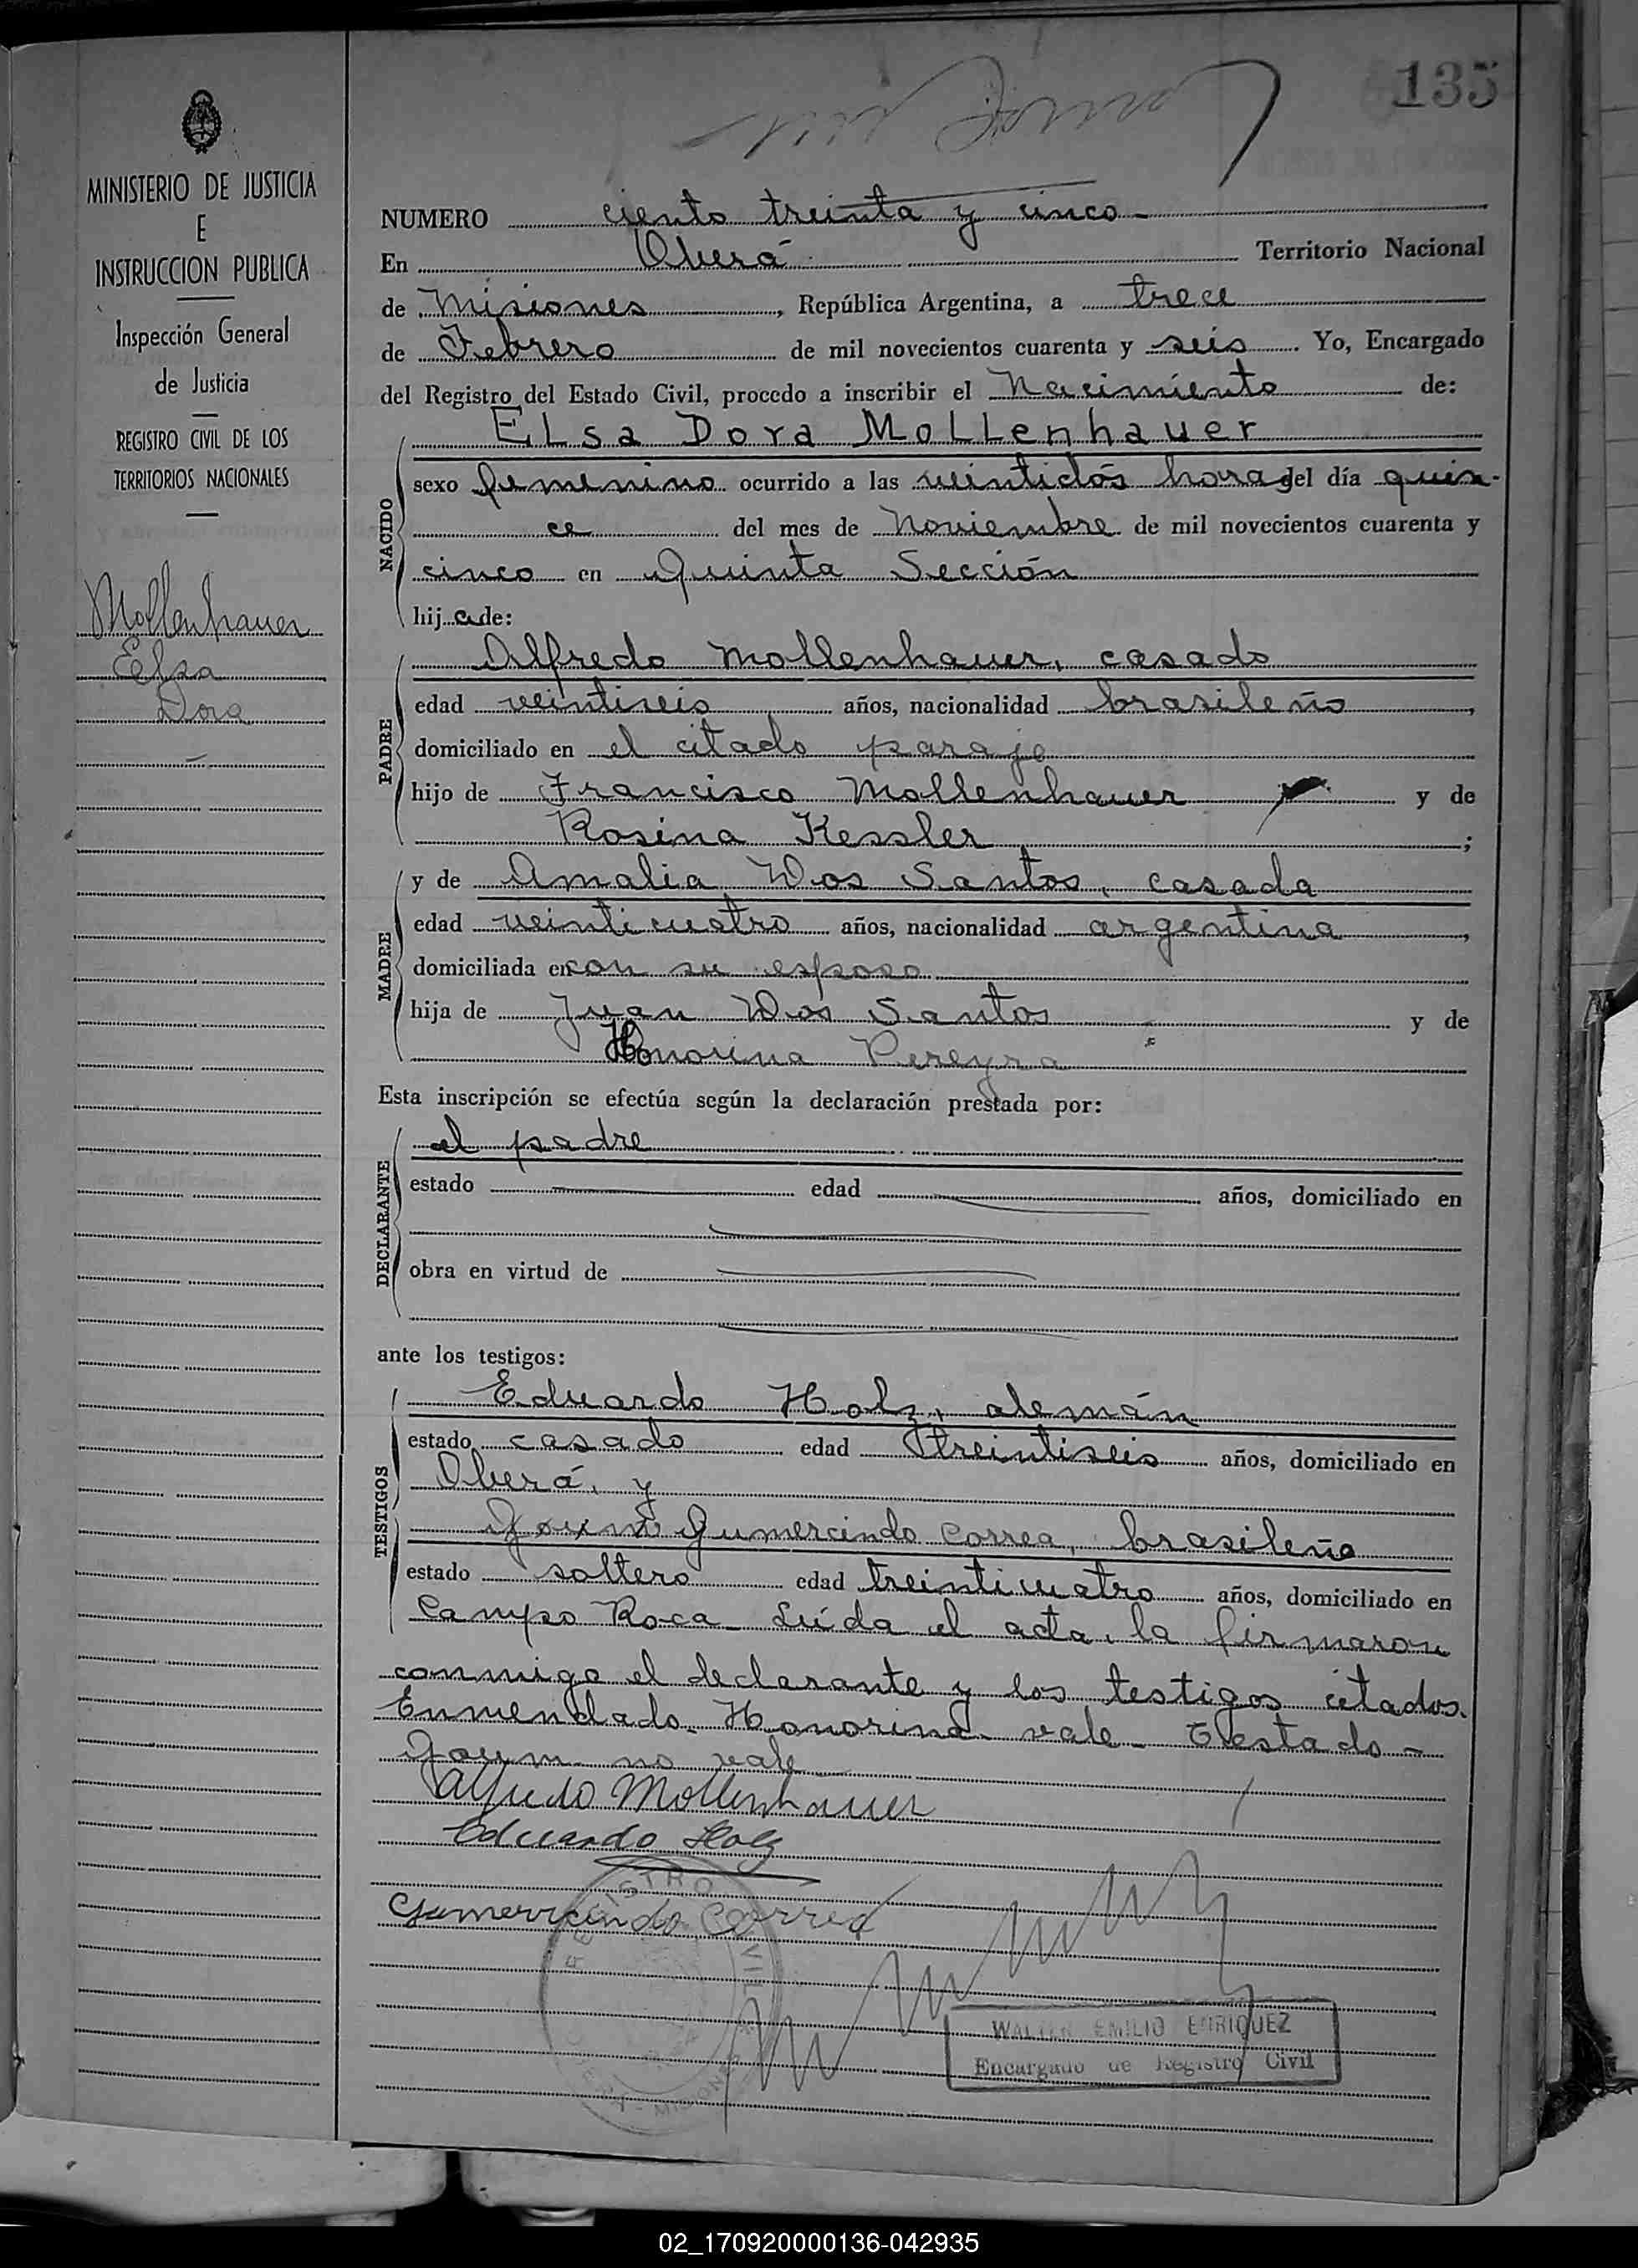 135
MINISTERIO DE JUSTICIA
E
INSTRUCCION PUBLICA
Inspección General
de Justicia
REGISTRO CIVIL DE LOS
TERRITORIOS NACIONALES
Mollenhauer
Elsa
Dora
NUMERO ciento treinta y cinco
En Oberá Territorio Nacional
de Misiones, República Argentina, a trece
de Febrero de mil novecientos cuarenta y seis. Yo, Encargado
del Registro del Estado Civil, procedo a inscribir el Nacimiento de:
NACIDO
Elsa Dora Mollenhauer
sexo femenino ocurrido a las veintidós horas del día quin-
ce del mes de Noviembre de mil novecientos cuarenta y
cinco en Quinta Sección
hij a de:
PADRE
Alfredo Mollenhauer, casado
edad veintiseis años, nacionalidad brasileño,
domiciliado en el citado paraje
hijo de Francisco Mollenhauer y de
Rosina Kessler;
MADRE
y de Amalia Dos Santos, casada
edad veinticuatro años, nacionalidad argentina,
domiciliada en con su esposo
hija de Juan Dos Santos y de
Honorina Pereyra
Esta inscripción se efectúa según la declaración prestada por:
DECLARANTE
el padre
estado edad años, domiciliado en
obra en virtud de
ante los testigos:
TESTIGOS
Eduardo Holz, alemán
estado casado edad treintiseis años, domiciliado en
Oberá, y
Gumercindo Correa, brasileño
estado soltero edad treinticuatro años, domiciliado en
Campo Roca. Leída el acta, la firmaron
conmigo el declarante y los testigos citados.
Enmendado. Honorina. vale. Testado -
no vale
Alfredo Mollenhauer
Eduardo Holz
Gumercindo Correa
REGISTRO CIVIL
MISIONES
WALTER EMILIO ENRIQUEZ
Encargado de Registro Civil
02_170920000136-042935